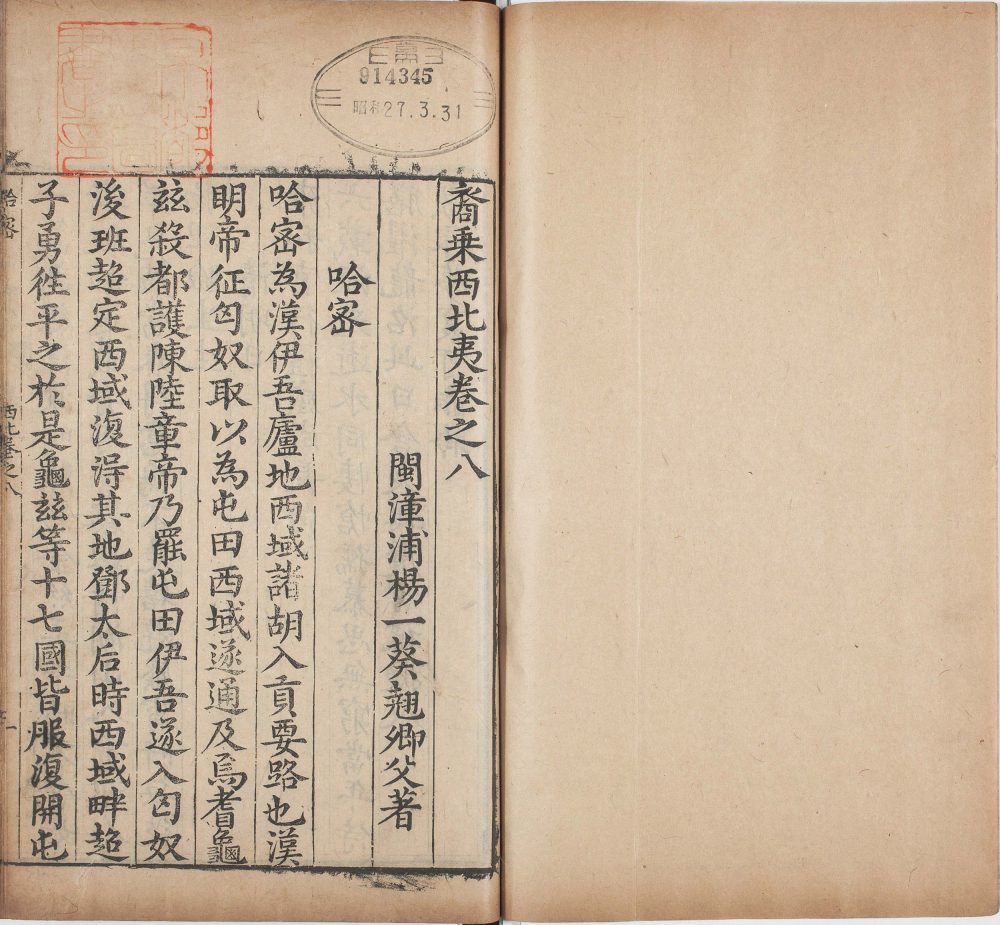 裔乗西北夷卷之八
閩漳浦楊一葵翹卿父著
哈密
哈密為漢伊吾廬地西域諸胡入貢要路也漢
明帝征匈奴取以為屯田西域遂通及焉耆龜
兹殺都護陳陸章帝乃罷屯田伊吾遂入匈奴
後班超定西域復得其地鄧太后時西域畔超
子勇徃平之於是龜兹等十七國皆服復開屯
哈密
西北卷之八
一
914345
昭和27.3.31